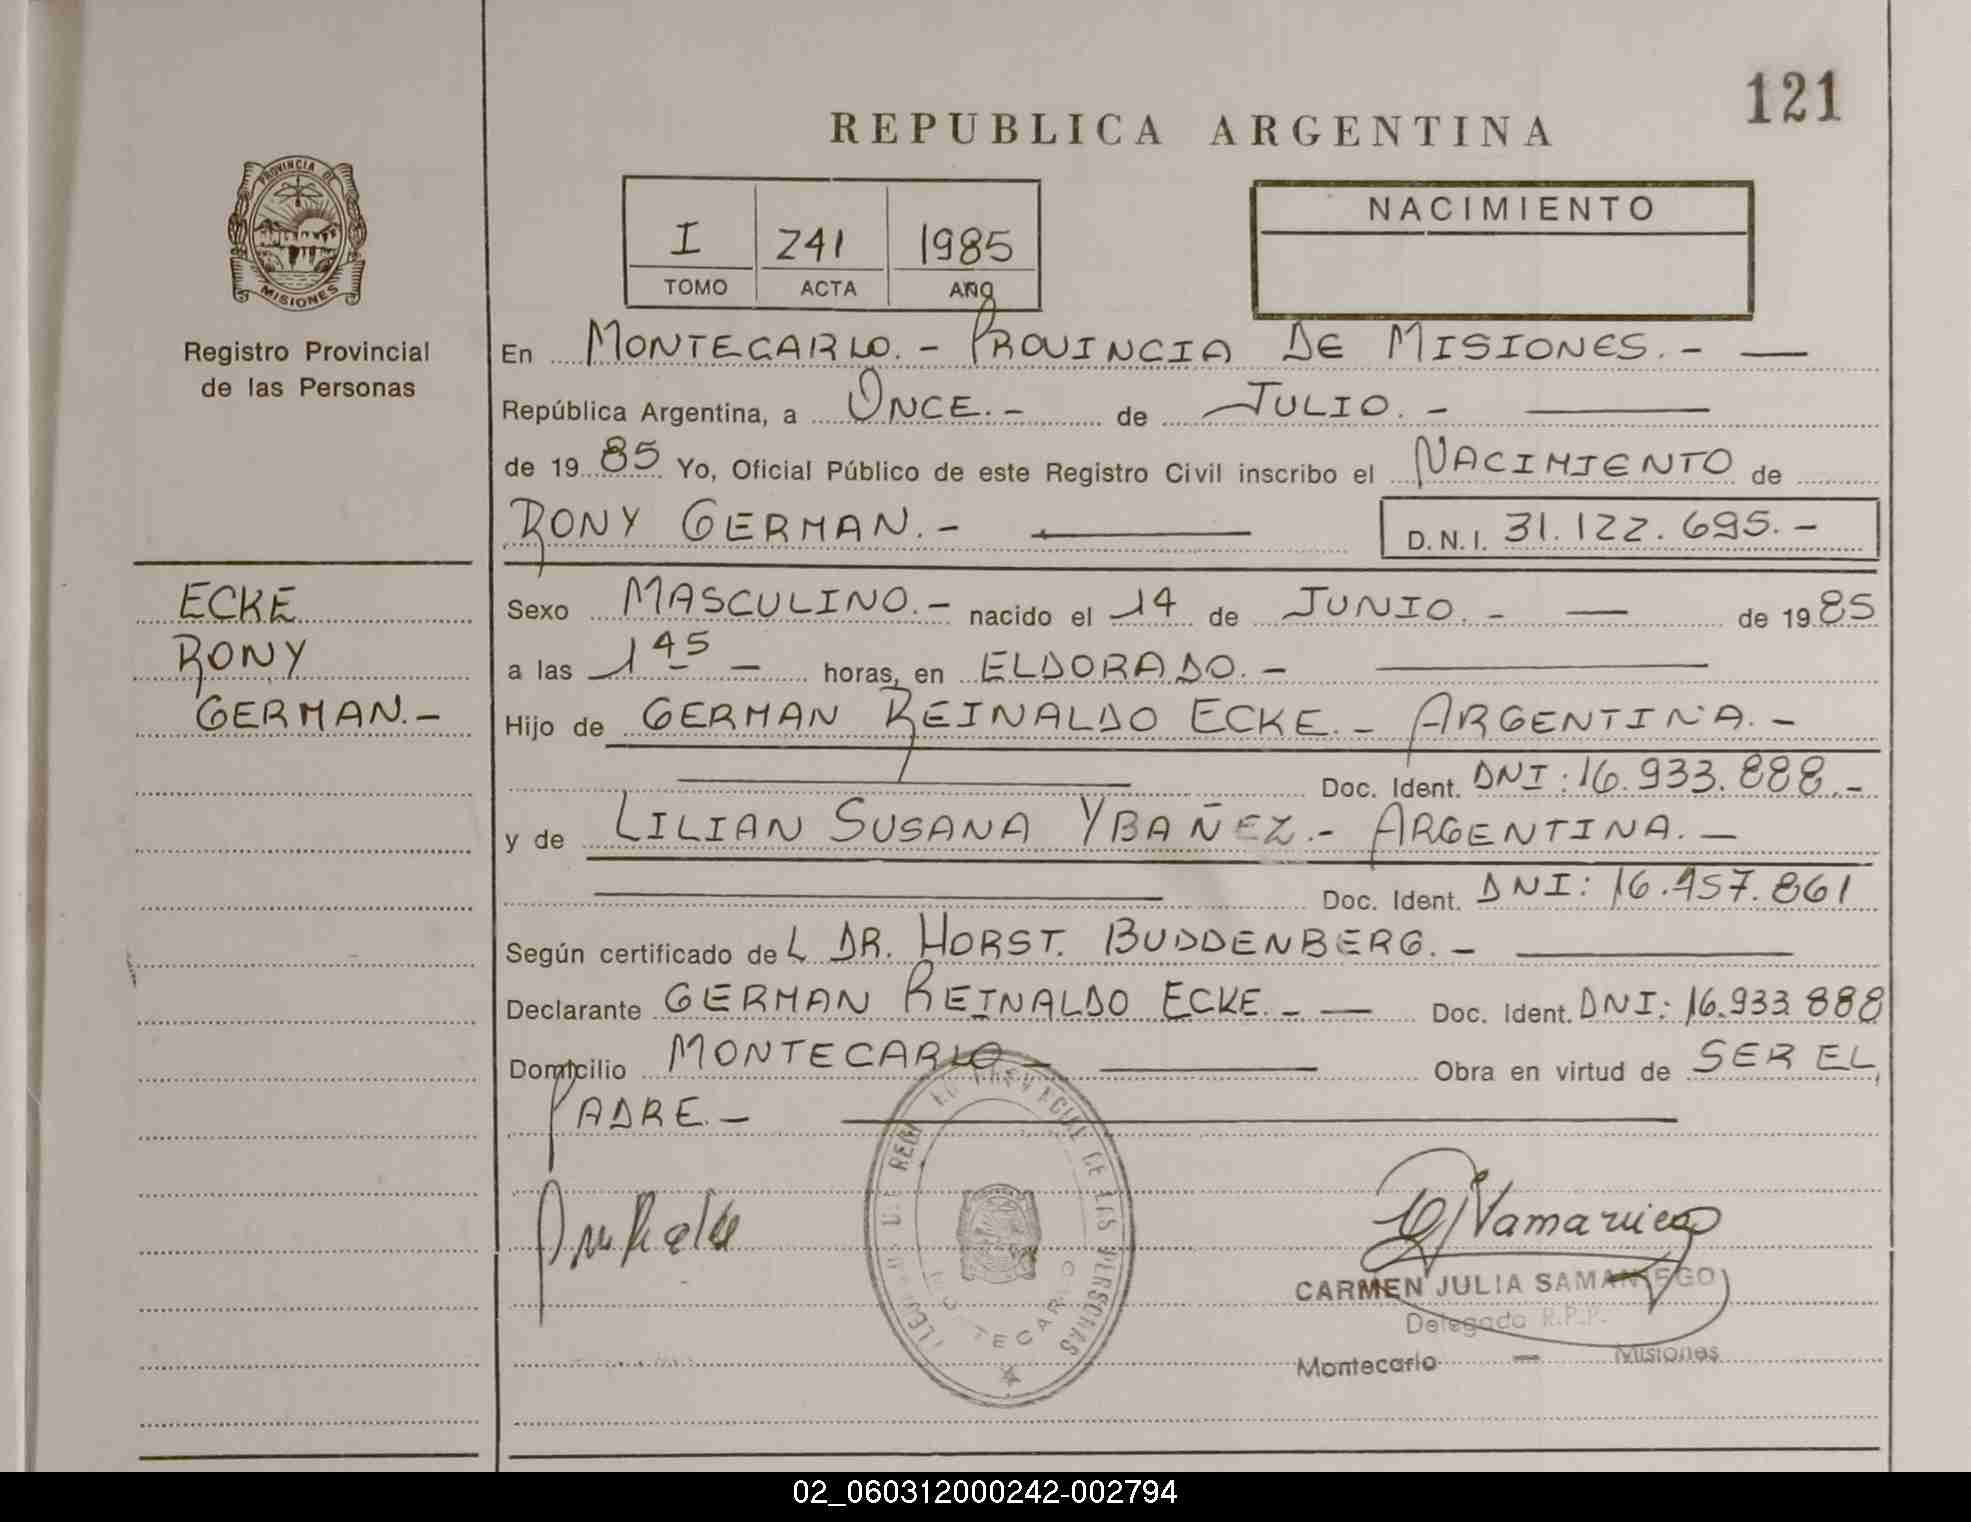 121
REPUBLICA ARGENTINA
PROVINCIA DE
MISIONES
Registro Provincial
de las Personas
I 241 1985
TOMO ACTA AÑO
NACIMIENTO
En MONTECARLO.- PROVINCIA DE MISIONES.- —
República Argentina, a ONCE.- de JULIO.- —
de 1985 Yo, Oficial Público de este Registro Civil inscribo el NACIMIENTO de
RONY GERMAN.- — D.N.I. 31.122.695.-
ECKE
RONY
GERMAN.-
Sexo MASCULINO.- nacido el 14 de JUNIO.- — de 1985
a las 1 45 — horas, en ELDORADO.- —
Hijo de GERMAN REINALDO ECKE.- ARGENTINA.-
— Doc. Ident. DNI: 16.933.888.-
y de LILIAN SUSANA YBAÑEZ.- ARGENTINA.—
— Doc. Ident. DNI: 16.457.861
Según certificado deL DR. HORST. BUDDENBERG.- —
Declarante GERMAN REINALDO ECKE.- — Doc. Ident. DNI: 16.933.888
Domicilio MONTECARLO - — Obra en virtud de SER EL
PADRE.- —
PROVINCIAL DE LAS PERSONAS
MONTECARLO
CARMEN JULIA SAMANIEGO
Delegada R.P.P.
Montecarlo — Misiones
02_060312000242-002794